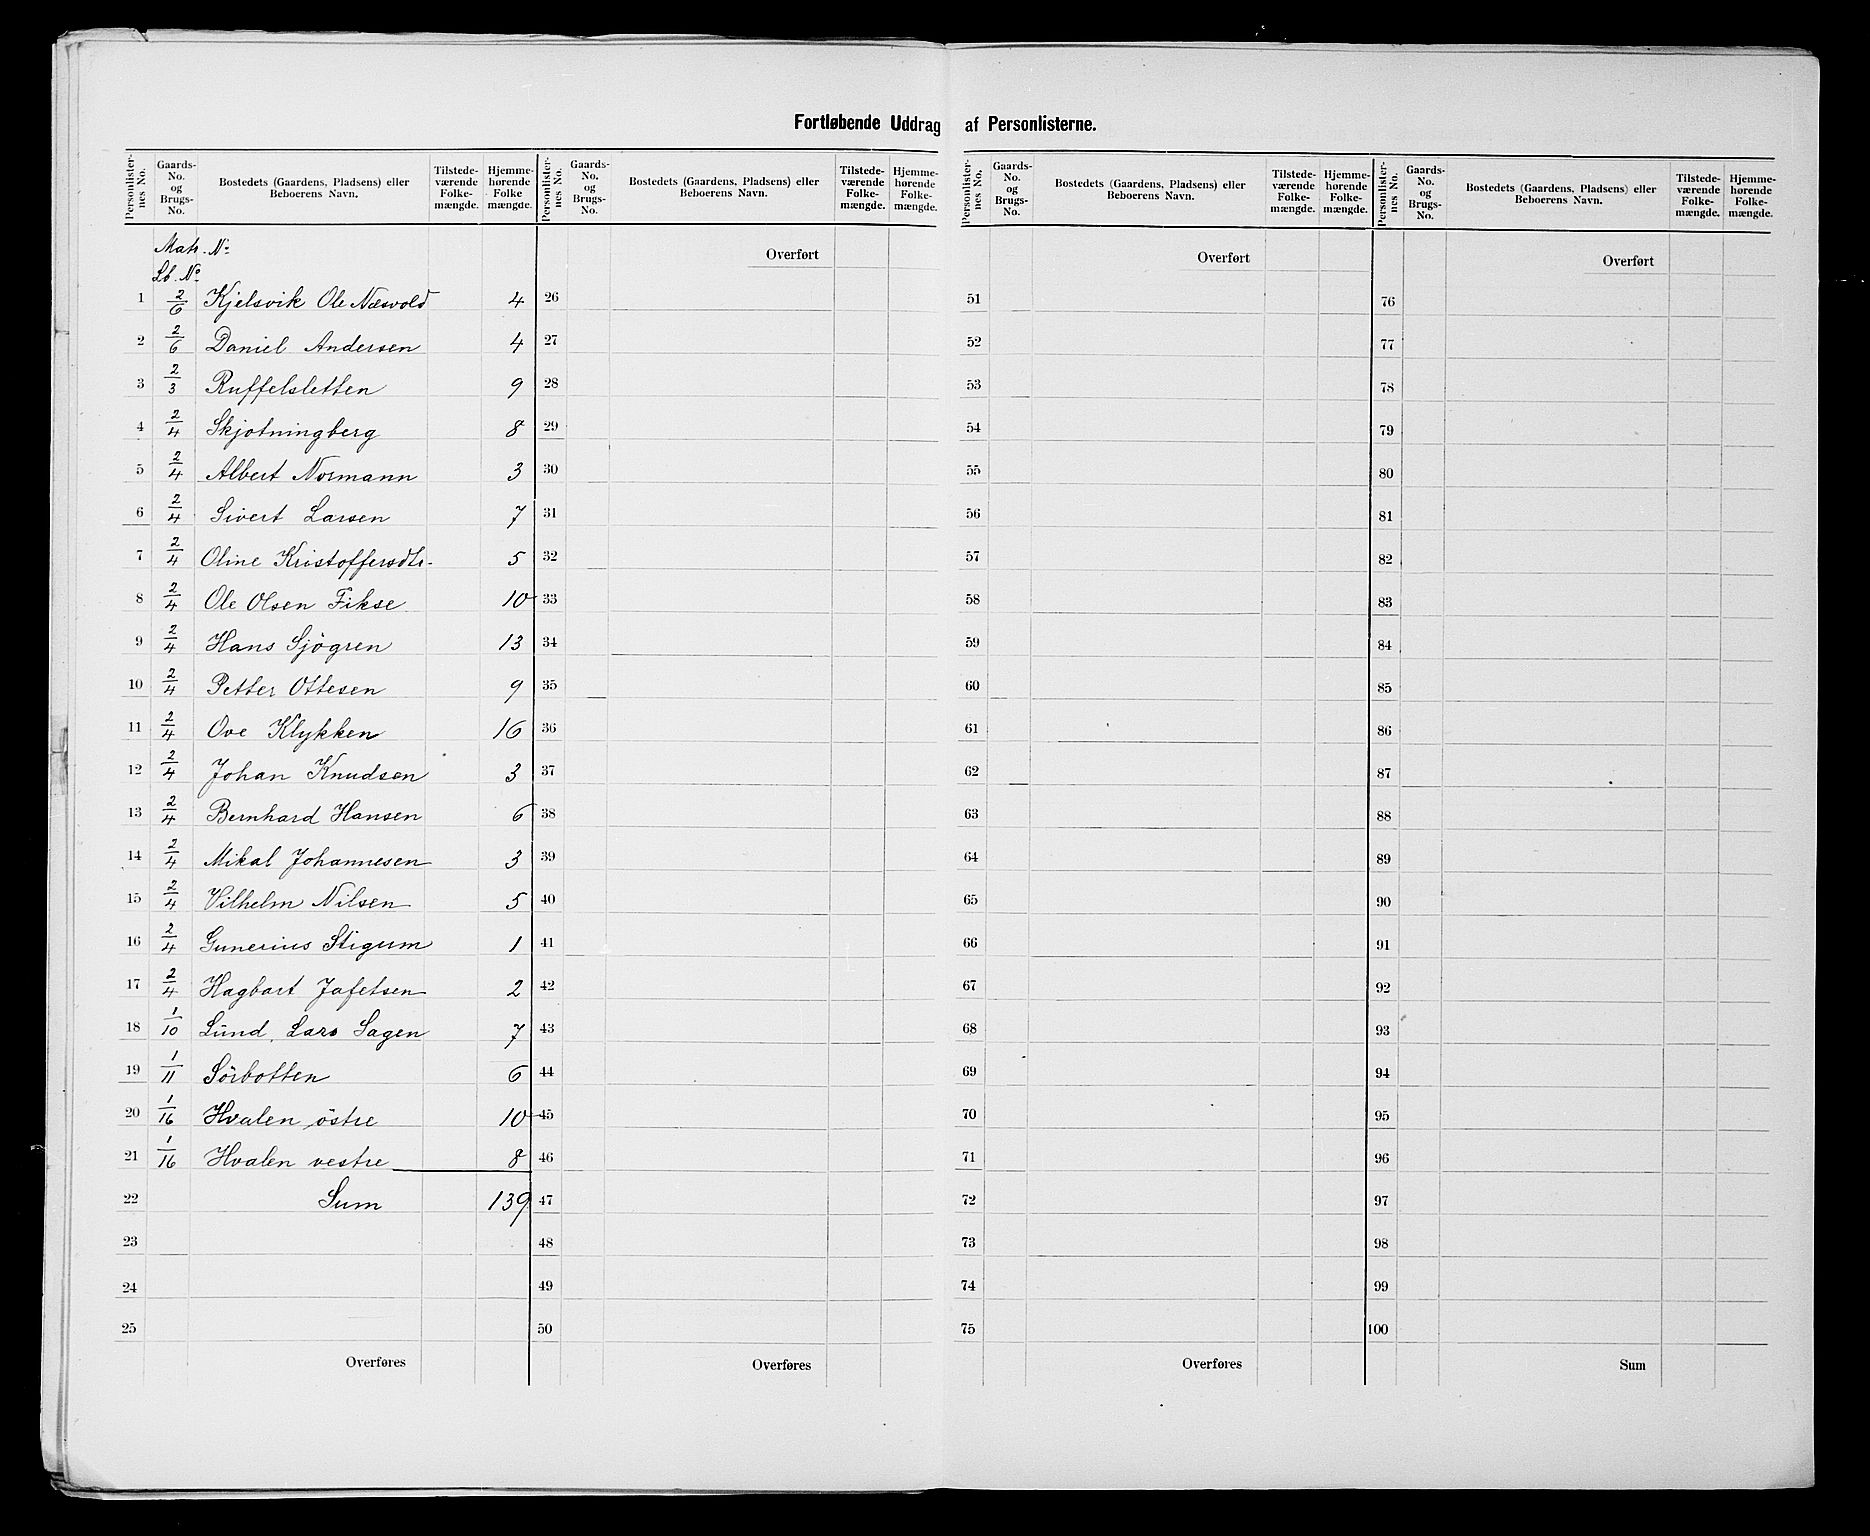 Fortløbende Uddrag af Personlisterne.
Personlister-nes No. Gaards-No. og Brugs-No. Bostedets (Gaardens, Pladsens) eller Beboerens Navn. Tilstede-værende Folke-mængde. Hjemme-hørende Folke mængde.
Matr. No
Lb. No
1 2/6 Kjelsvik Ole Næsvold 4
2 2/6 Daniel Andersen 4
3 2/3 Ruffelsletten 9
4 2/4 Skjotningberg 8
5 2/4 Albert Normann 3
6 2/4 Sivert Larsen 7
7 2/4 Oline Kristoffersdtr. 5
8 2/4 Ole Olsen Fikse 10
9 2/4 Hans Sjögren 13
10 2/4 Petter Ottesen 9
11 2/4 Ove Klykken 16
12 2/4 Johan Knudsen 3
13 2/4 Bernhard Hansen 6
14 2/4 Mikal Johannesen 3
15 2/4 Vilhelm Nilsen 5
16 2/4 Gunerius Stigum 1
17 2/4 Hagbart Jafetsen 2
18 1/10 Lund, Lars Sagen 7
19 1/11 Sörbotten 6
20 1/16 Hvalen östre 10
21 1/16 Hvalen vestre 8
22 Sum 139
23
24
25
Overføres
Personlister-nes No. Gaards-No. og Brugs-No. Bostedets (Gaardens, Pladsens) eller Beboerens Navn. Tilstede-værende Folke-mængde. Hjemme-hørende Folke-mængde.
Overført
26
27
28
29
30
31
32
33
34
35
36
37
38
39
40
41
42
43
44
45
46
47
48
49
50
Overføres
Personlister-nes No. Gaards-No. og Brugs-No. Bostedets (Gaardens, Pladsens) eller Beboerens Navn. Tilstede-værende Folke-mængde. Hjemme-hørende Folke-mængde.
Overført
51
52
53
54
55
56
57
58
59
60
61
62
63
64
65
66
67
68
69
70
71
72
73
74
75
Overføres
Personlister-nes No. Gaards-No. og Brugs-No. Bostedets (Gaardens, Pladsens) eller Beboerens Navn. Tilstede-værende Folke-mængde. Hjemme-hørende Folke-mængde.
Overført
76
77
78
79
80
81
82
83
84
85
86
87
88
89
90
91
92
93
94
95
96
97
98
99
100
Sum